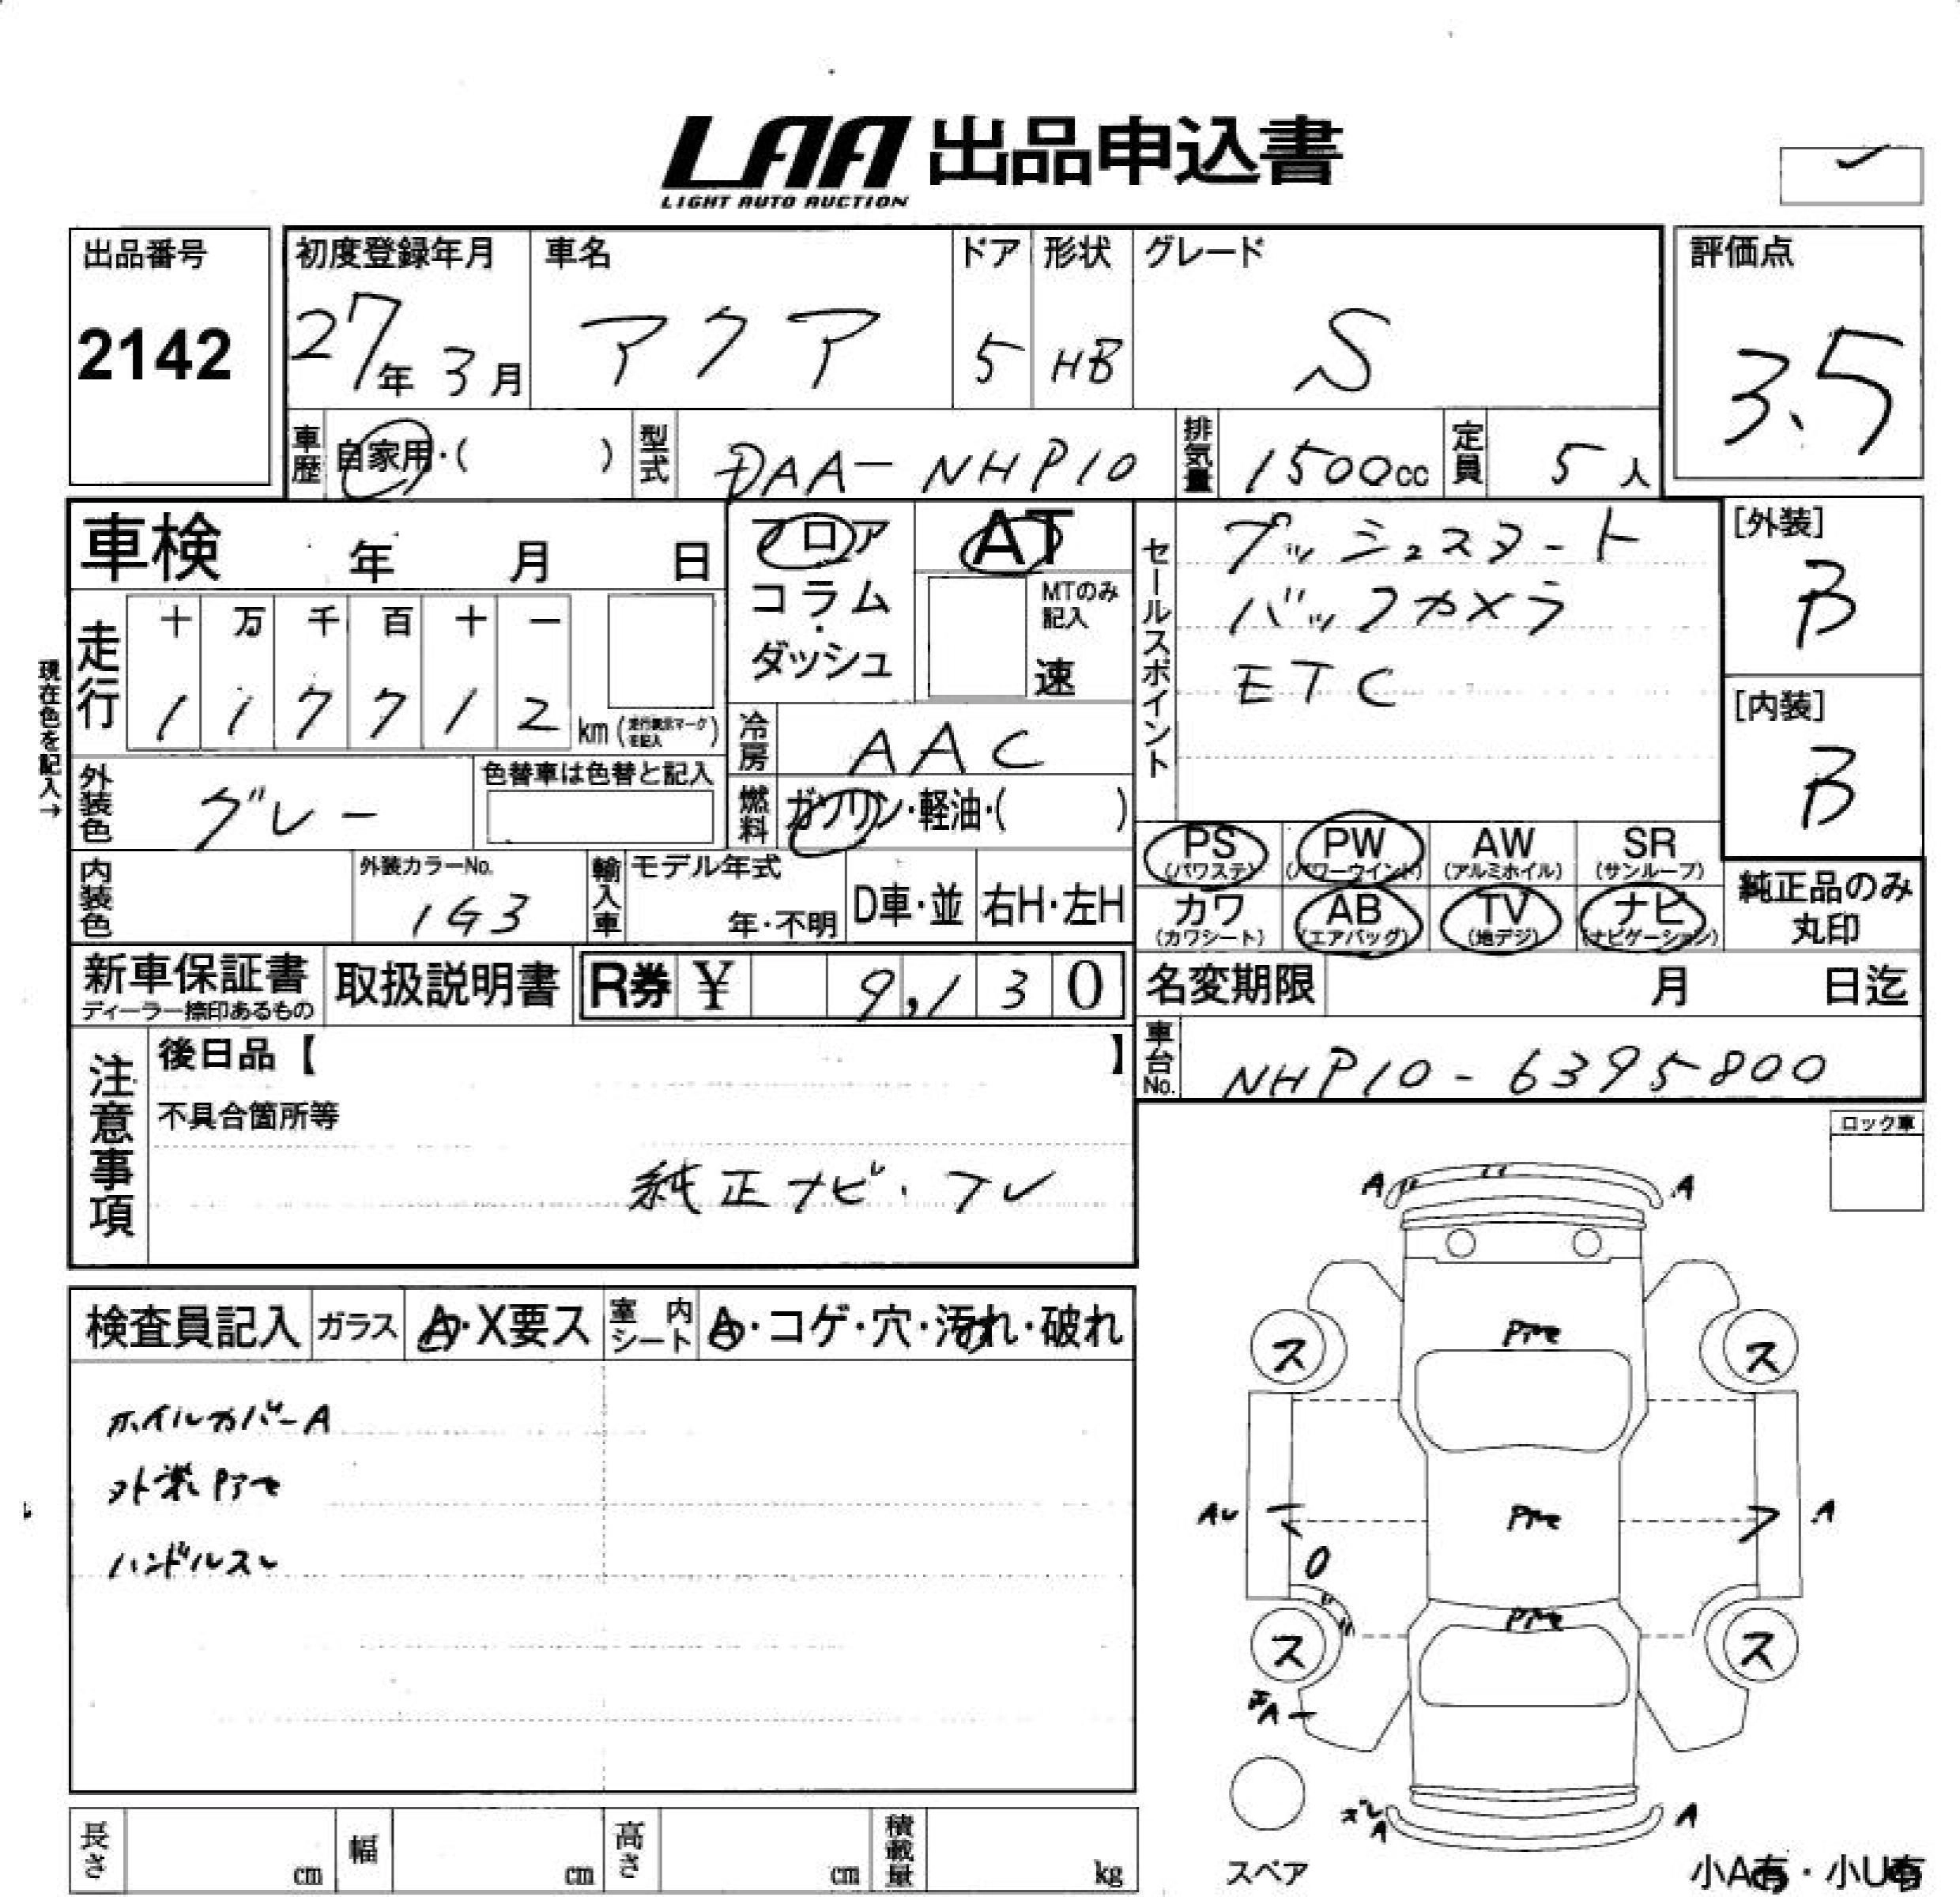 LAA 出品申込書
LIGHT AUTO AUCTION
出品番号
2142
初度登録年月
27年 3月
車名
アクア
ドア
5
形状
HB
グレード
S
評価点
3.5
車歴
自家用・( )
型式
DAA-NHP10
排気量
1500cc
定員
5人
車検 年 月 日
フロア
コラム・ダッシュ
AT
MTのみ記入
速
セールスポイント
プッシュスタート
バックカメラ
ETC
[外装]
B
[内装]
B
現在色を記入→
走行
十 万 千 百 十 一
1 1 7 7 1 2 km (走行表示マークを記入)
冷房
AAC
外装色
グレー
色替車は色替と記入
燃料
ガソリン・軽油・( )
PS (パワステ) PW (パワーウインド) AW (アルミホイル) SR (サンルーフ)
カワ (カワシート) AB (エアバッグ) TV (地デジ) ナビ (ナビゲーション)
純正品のみ丸印
内装色
外装カラーNo.
1G3
輸入車
モデル年式
年・不明
D車・並
右H・左H
新車保証書
ディーラー捺印あるもの
取扱説明書
R券 ¥ 9,130
名変期限 月 日迄
車台No.
NHP10-6395800
注意事項
後日品【 】
不具合箇所等
純正ナビ・フレ
ロック車
検査員記入 ガラス A・X要ス 室内シート A・コゲ・穴・汚れ・破れ
ホイルカバーA
外装Pアセ
ハンドルスレ
A A
Pアセ
ス ス
Pアセ
A
O
Pアセ
ス ス
A
A A
スペア
小A有・小U有
長さ cm 幅 cm 高さ cm 積載量 kg